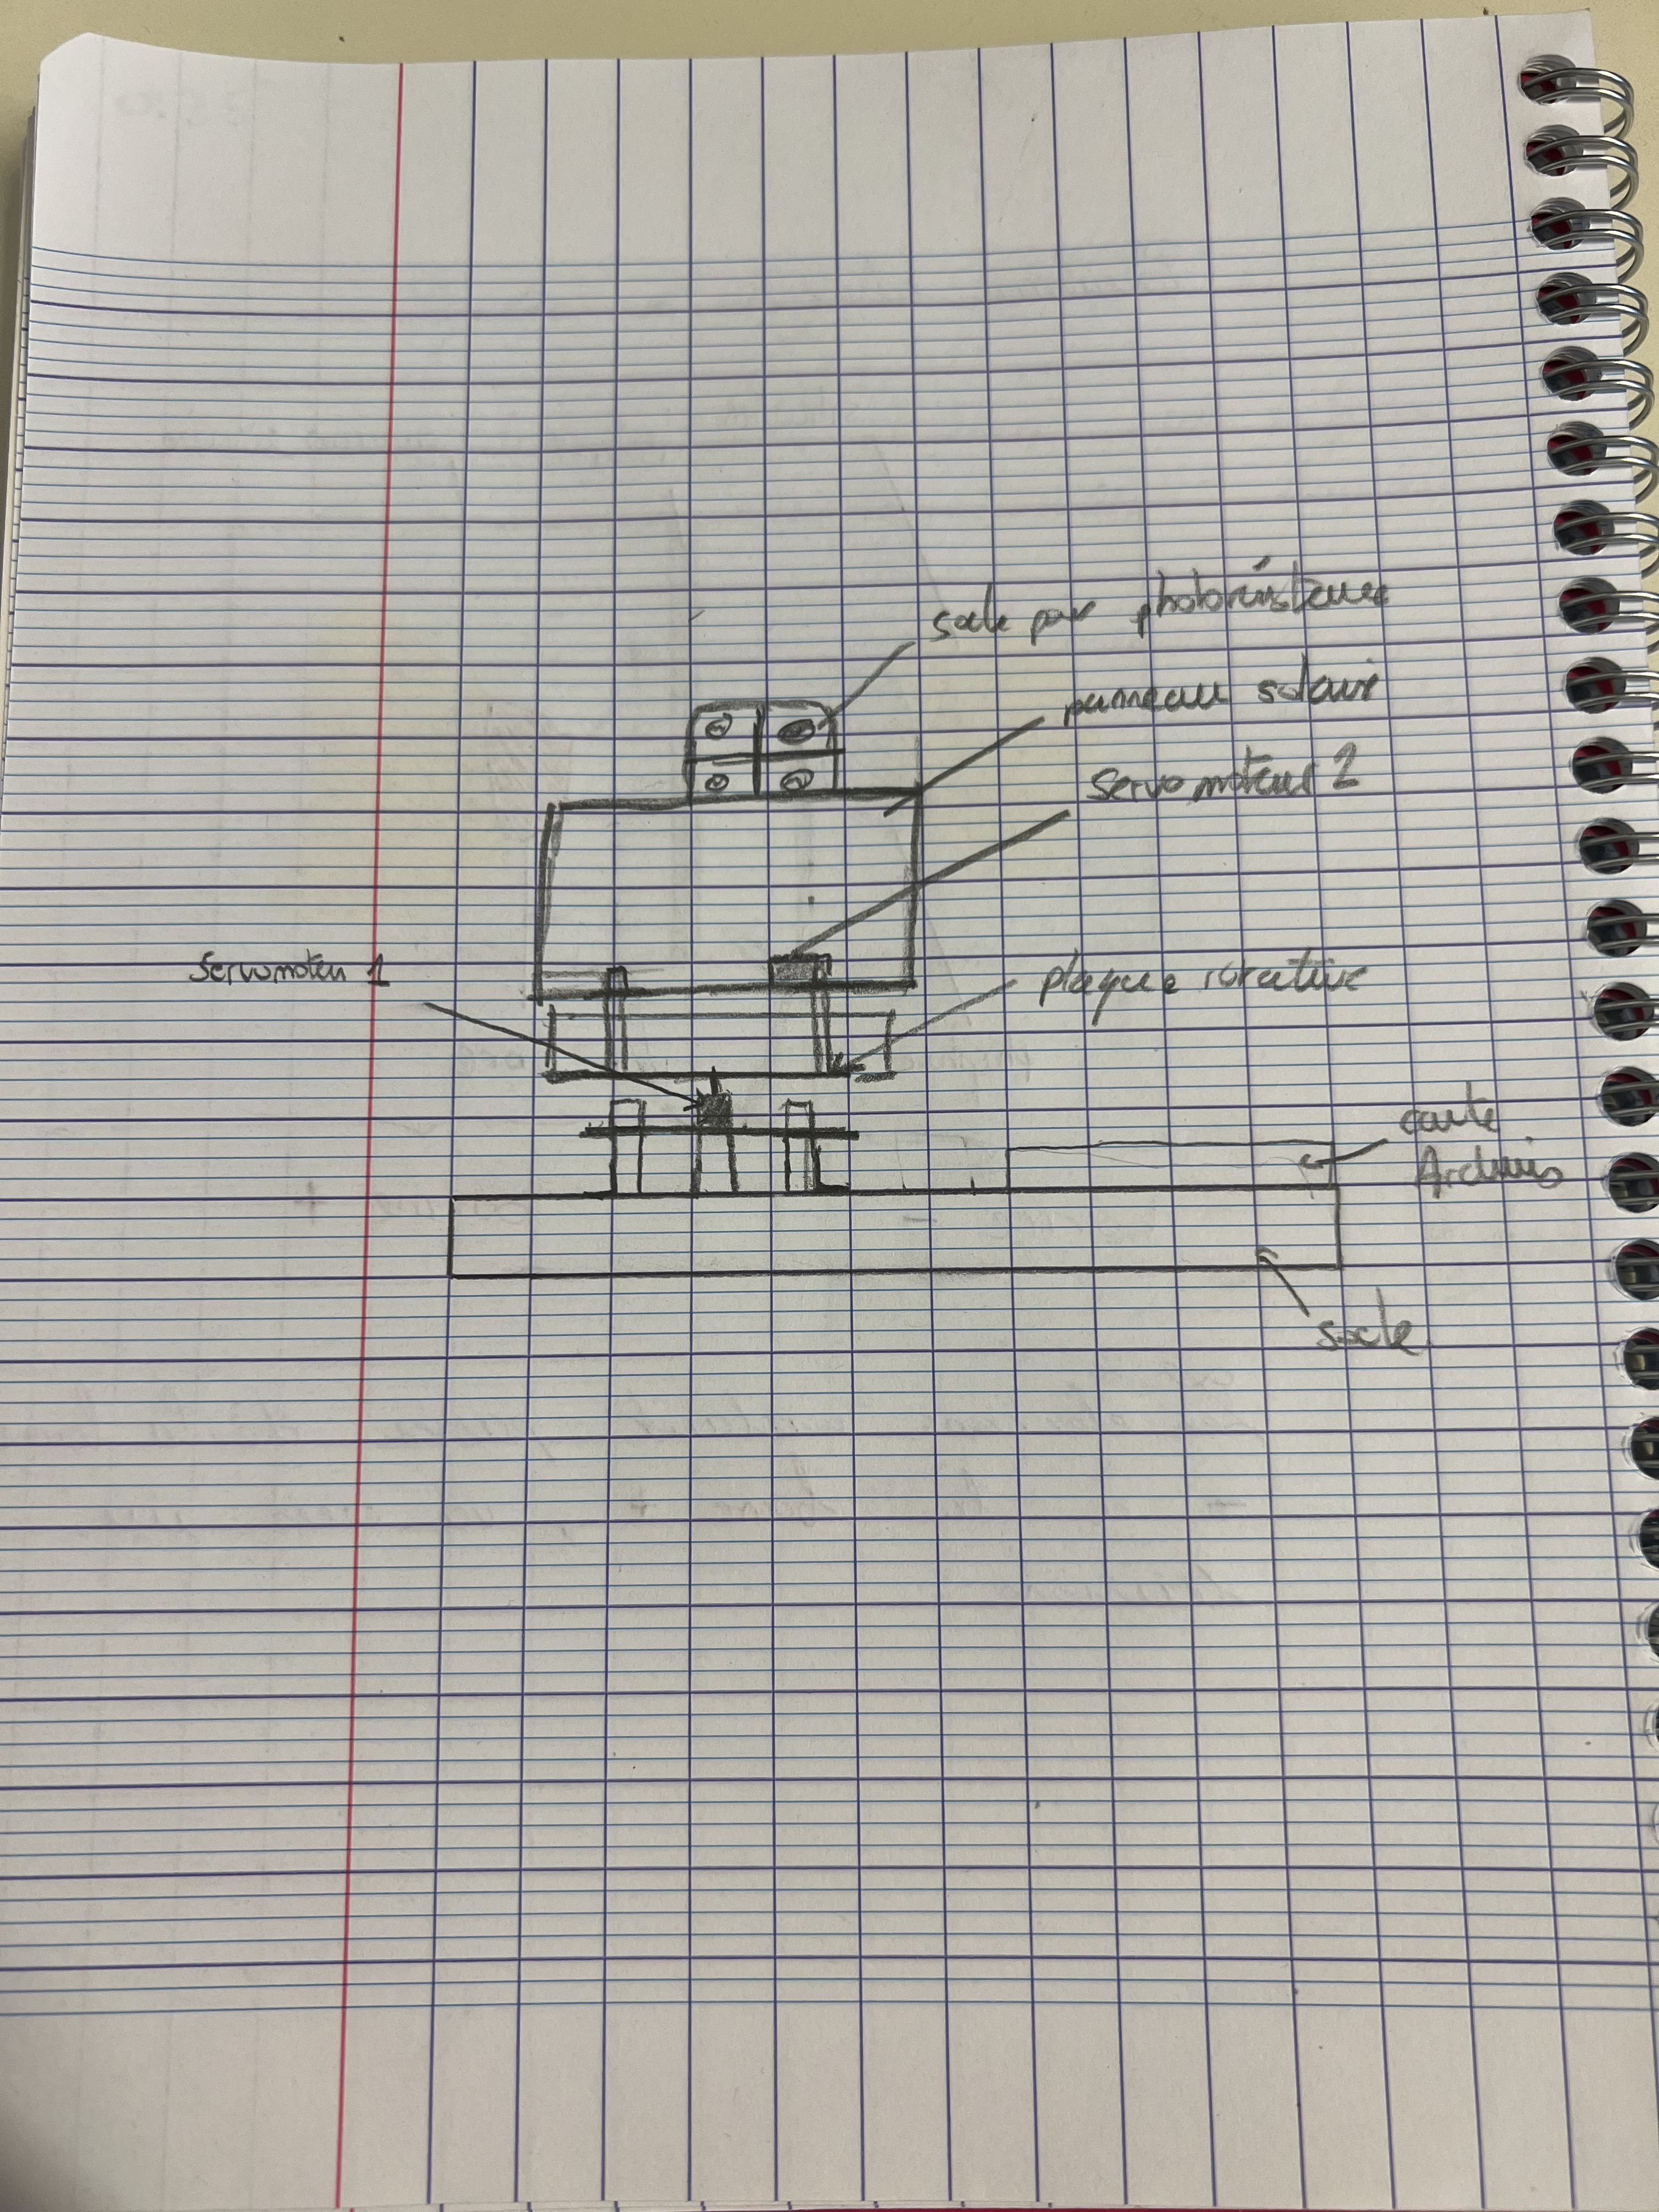 socle pour photorésisteurs
panneau solaire
Servomoteur 2
Servomoteur 1
plaque rotative
carte
Arduino
socle